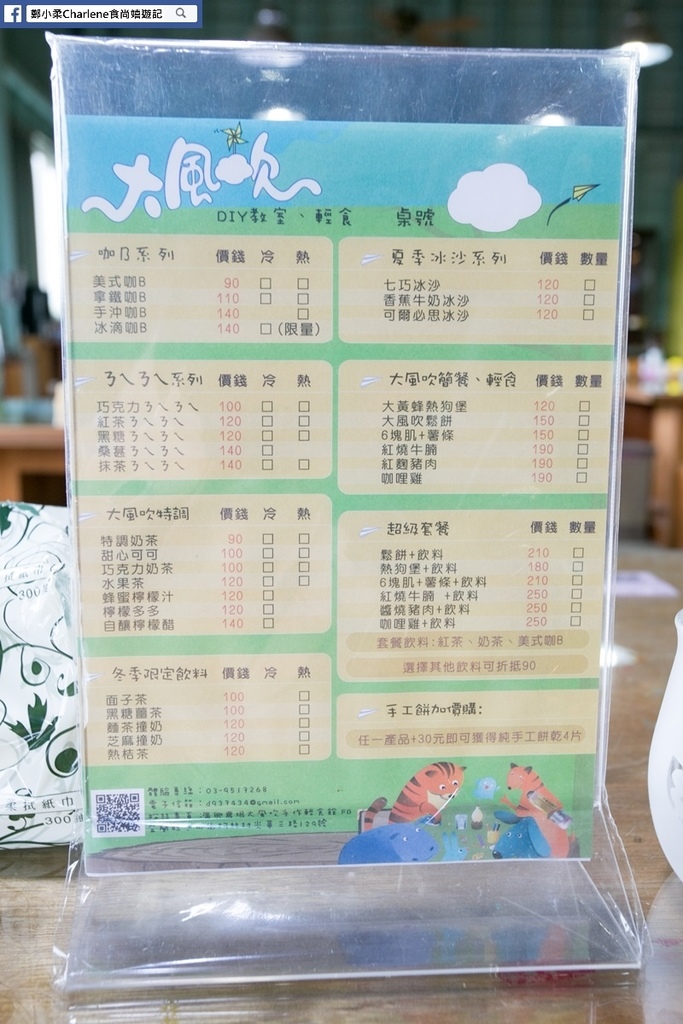 鄭小柔Charlene食尚嬉遊記
大風吹
DIY教室、輕食 桌號
咖B系列 價錢 冷 熱
美式咖B 90 □ □
拿鐵咖B 110 □ □
手沖咖B 140 □
冰滴咖B 140 □(限量)
ㄋㄟㄋㄟ系列 價錢 冷 熱
巧克力ㄋㄟㄋㄟ 100 □ □
紅茶ㄋㄟㄋㄟ 120 □ □
黑糖ㄋㄟㄋㄟ 120 □ □
桑葚ㄋㄟㄋㄟ 140 □
抹茶ㄋㄟㄋㄟ 140 □ □
大風吹特調 價錢 冷 熱
特調奶茶 90 □ □
甜心可可 100 □ □
巧克力奶茶 100 □ □
水果茶 120 □ □
蜂蜜檸檬汁 120 □
檸檬多多 120 □
自釀檸檬醋 140 □
冬季限定飲料 價錢 熱
面子茶 100 □
黑糖薑茶 100 □
麵茶撞奶 120 □
芝麻撞奶 120 □
熱桔茶 120 □
夏季冰沙系列 價錢 數量
七巧冰沙 120 □
香蕉牛奶冰沙 120 □
可爾必思冰沙 120 □
大風吹簡餐、輕食 價錢 數量
大黃蜂熱狗堡 120 □
大風吹鬆餅 150 □
6塊肌+薯條 150 □
紅燒牛腩 190 □
紅麴豬肉 190 □
咖哩雞 190 □
超級套餐 價錢 數量
鬆餅+飲料 210 □
熱狗堡+飲料 180 □
6塊肌+薯條+飲料 210 □
紅燒牛腩 +飲料 250 □
醬燒豬肉+飲料 250 □
咖哩雞+飲料 250 □
套餐飲料:紅茶、奶茶、美式咖B
選擇其他飲料可折抵90
手工餅加價購:
任一產品+30元即可獲得純手工餅乾4片
:03-9517268
電子信箱:d937434@gmail.com
拭紙巾
300
柔拭紙巾
300